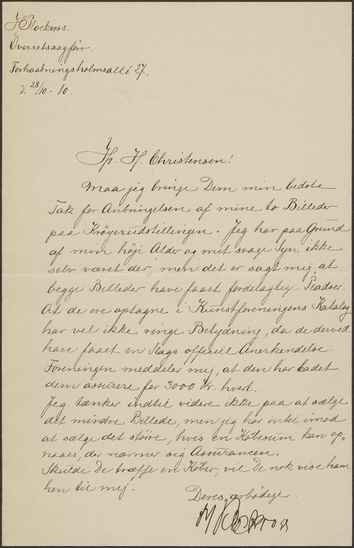 Overretssagfører.
Forhaabningsholmsallé 27.
d. 28/10 - 10.
Hr. H. Christensen!
Maa jeg bringe Dem min bedste
Tak for Anbringelsen af mine to Billeder
paa Krøyerudstillingen. Jeg har paa Grund
af min høje Alder og mit svage Syn ikke
selv været der, men det er sagt mig, at
begge Billeder have faaet fordelagtig Pladser.
At de ere optagne i Kunstforeningens Katalog
har vel ikke ringe Betydning, da de derved
have faaet en Slags officiel Anerkendelse.
Foreningen meddeler mig, at den har ladet
dem assurere for 3000 Kr. hvert.
Jeg tænker indtil videre ikke paa at sælge
det mindre Billede, men jeg har intet imod
at sælge det større, hvis en Købesum kan op-
naaes, der nærmer sig Assurancen.
Skulde De træffe en Køber, vil De nok vise ham
hen til mig.
Deres ærbødige